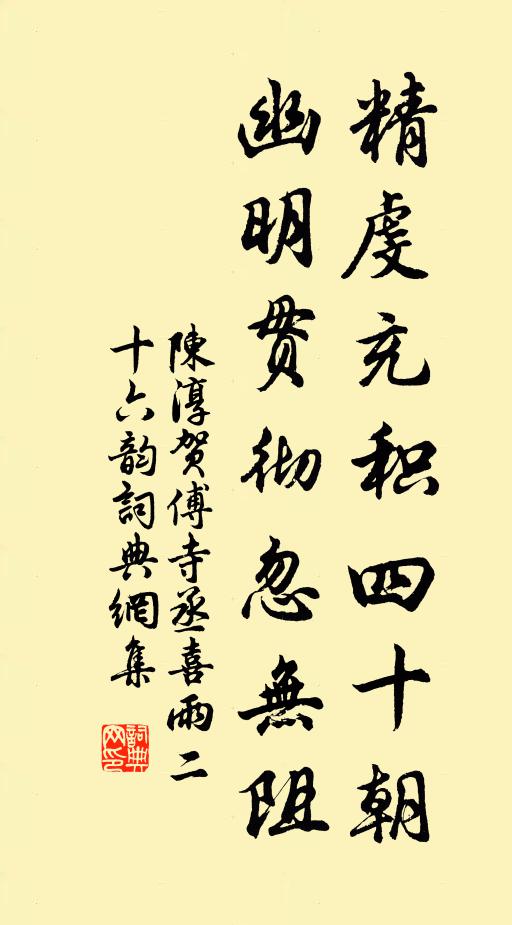 精虔充积四十朝
幽明贯彻忽無阻
陳淳贺傅寺丞喜雨二
十六韵詞典網集
詞典
网印